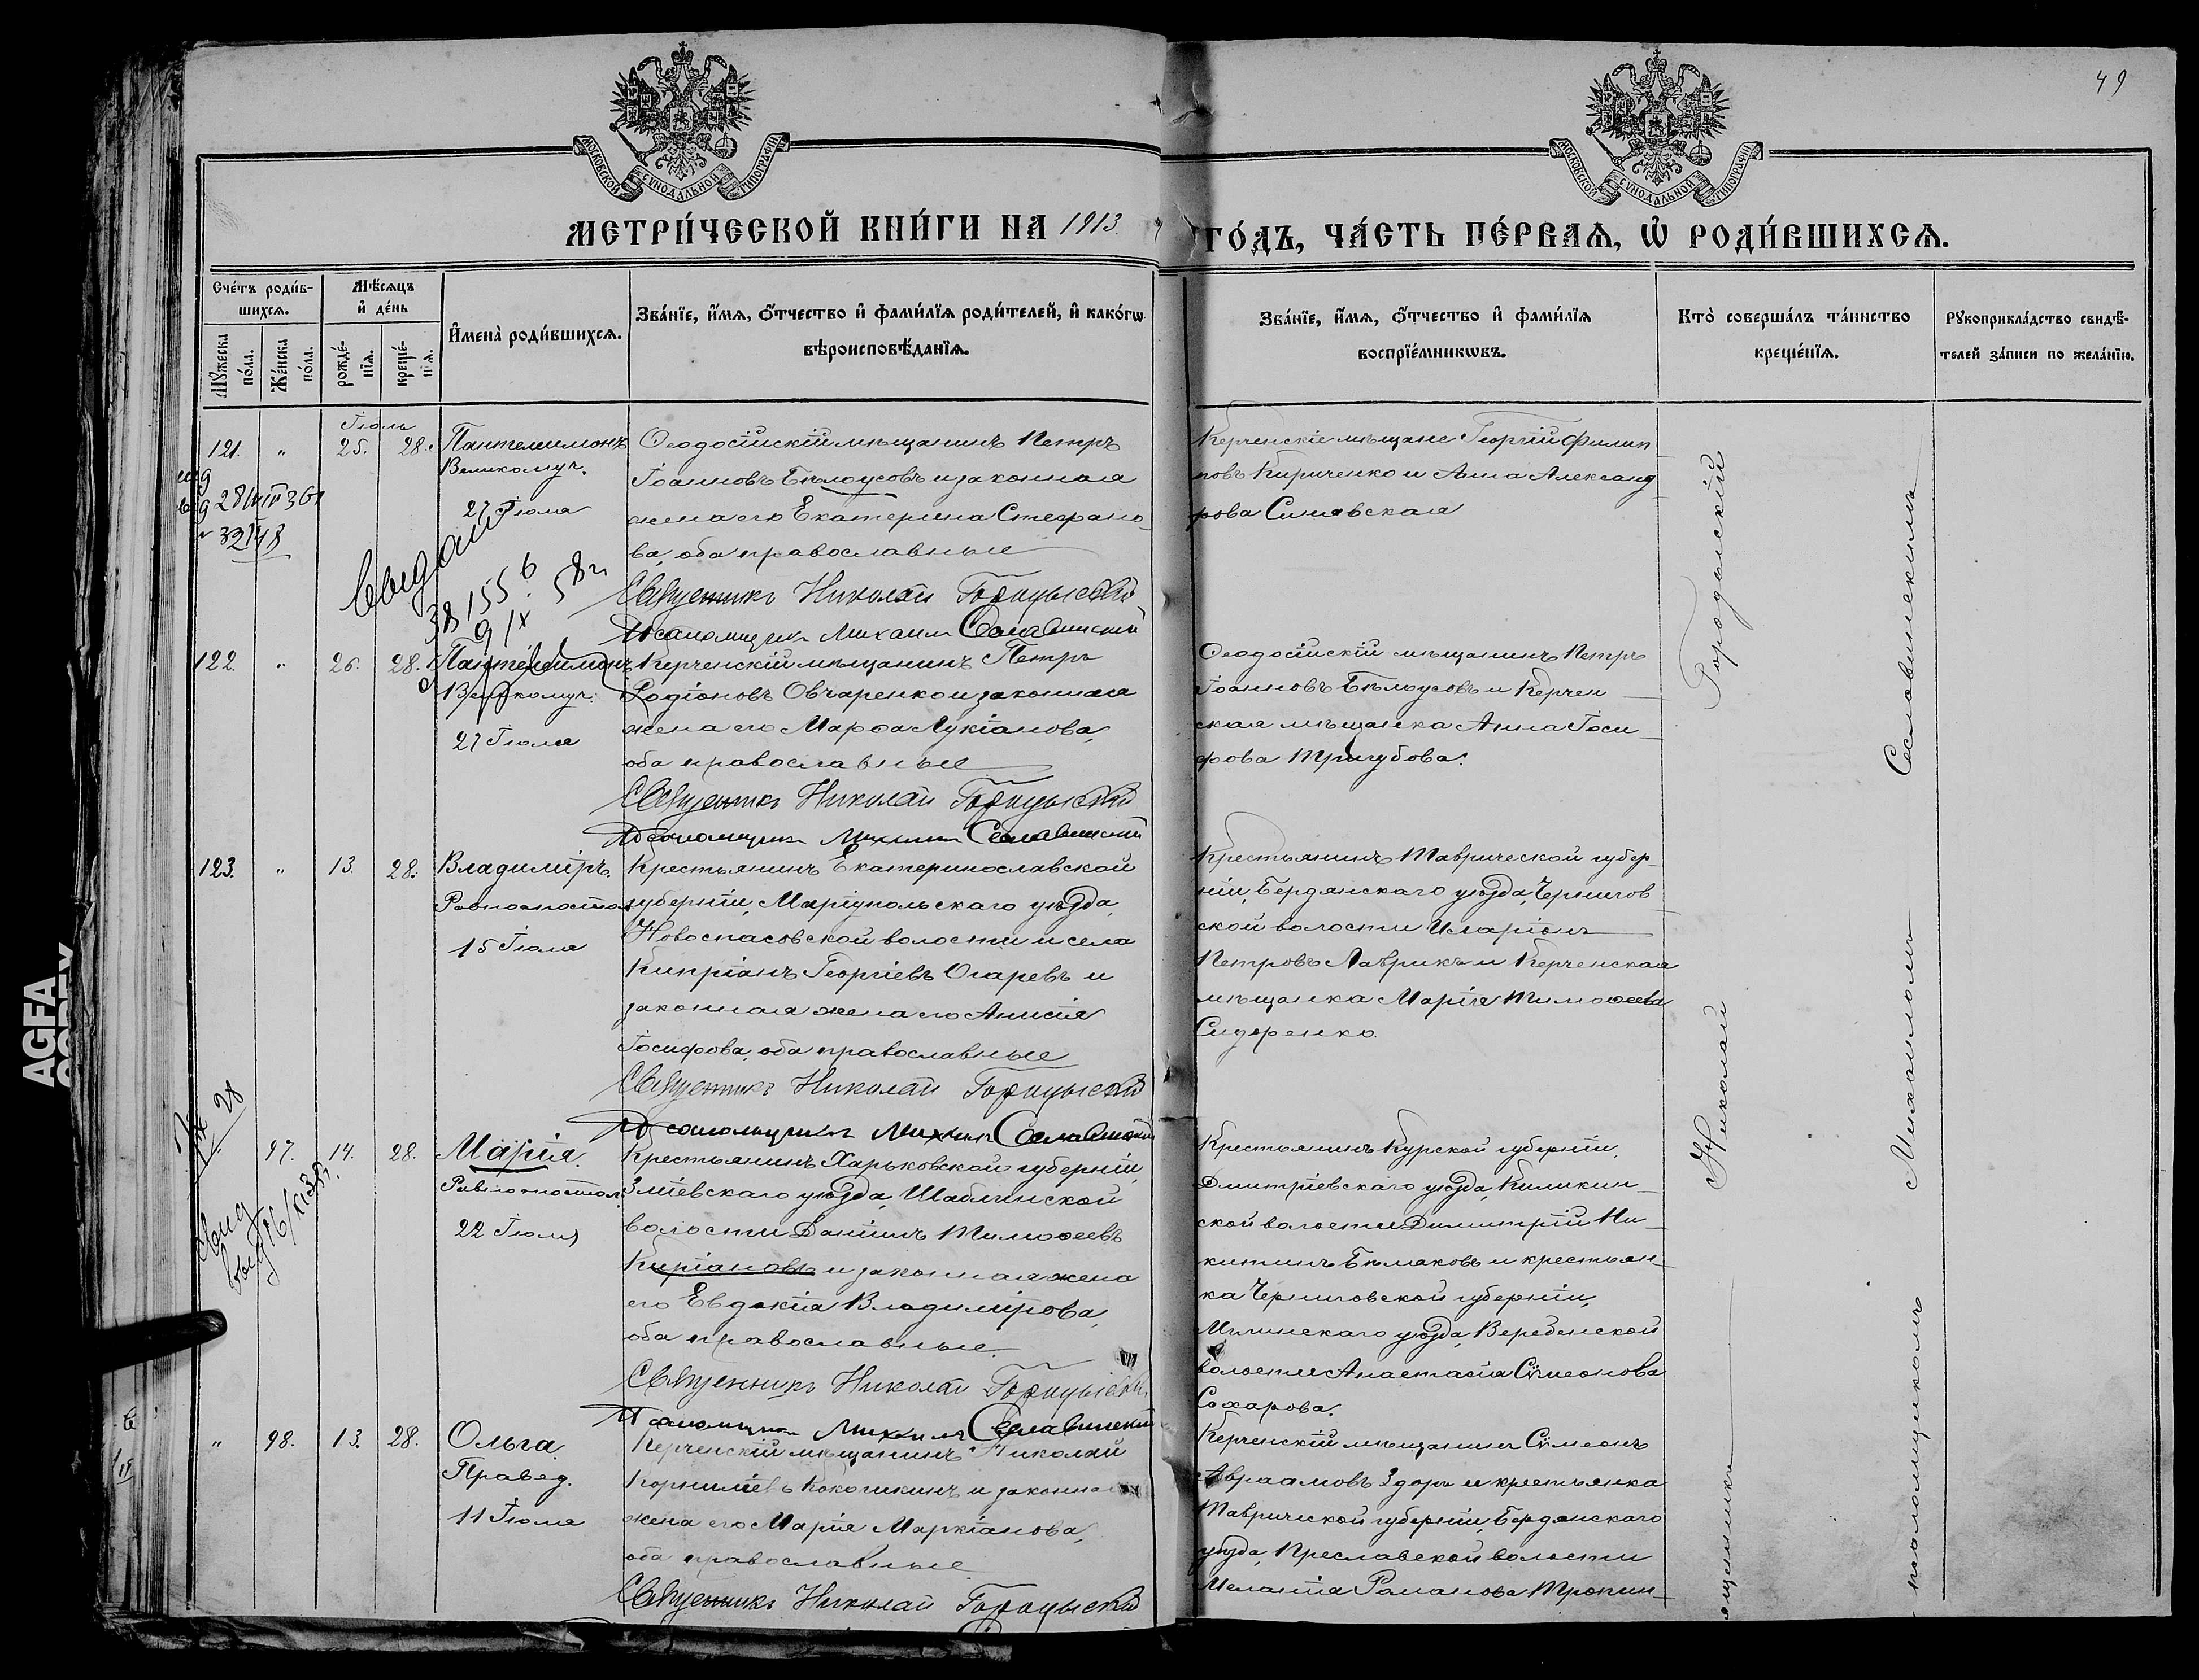 49
МОСКОВСКОЙ СѴНОДАЛЬНОЙ ТИПОГРАФІИ.
МОСКОВСКОЙ СѴНОДАЛЬНОЙ ТИПОГРАФІИ.
МЕТРИ́ЧЕСКОЙ КНИ́ГИ НА 1913 ГО́ДЪ, ЧА́СТЬ ПЕ́РВАѦ, Ѡ҆ РОДИ́ВШИХСѦ.
Сче́тъ роди́в-
шихсѧ.
Мꙋ́жеска по́ла.
Же́нска по́ла.
Мѣ́сѧцъ
и҆ де́нь
рожде́-
нїѧ.
креще́-
нїѧ.
И҆мена̀ роди́вшихсѧ.
Зва́нїе, и҆́мѧ, ѻ҆́тчество и҆ фами́лїѧ роди́телей, и҆ како́гѡ
вѣроисповѣ́данїѧ.
Зва́нїе, и҆́мѧ, ѻ҆́тчество и҆ фами́лїѧ
воспрїе́мникѡвъ.
Кто̀ соверша́лъ та́инство
креще́нїѧ.
Рꙋкоприкла́дство свидѣ́-
телей за́писи по жела́нїю.
Іюль
121. " 25. 28. Пантелимонъ
Великомуч.
27 Іюля
Ѳеодосійскій мѣщанинъ Петръ
Іоанновъ Бѣлоусовъ и законная
жена его Екатерина Стефано-
ва, оба православные
Священникъ Николай Городыский
Псаломщикъ Михаил Сеславинский
Керченскіе мѣщане Георгій Филип
повъ Кириченко и Анна Александ
рова Синявская
122. " 26. 28. Пантелеимонъ
Великомуч.
27 Іюля
Керченскій мѣщанинъ Петръ
Родіоновъ Овчаренко и законная
жена его Марѳа Лукіанова,
оба православные
Священникъ Николай Городыский
Псаломщикъ Михаил Сеславинский
Ѳеодосійскій мѣщанинъ Петръ
Іоанновъ Бѣлоусовъ и Керчен
ская мѣщанка Анна Іоси
фова Тригубова.
123. " 13. 28. Владиміръ.
Равноапостол.
15 Іюля
Крестьянинъ Екатеринославской
губерніи, Маріупольскаго уѣзда,
Новоспасовской волости и села
Кипріанъ Георгіевъ Огаревъ и
законная жена его Анисія
Іосифова, оба православные
Священникъ Николай Городыский
Псаломщикъ Михаил Сеславинский
Крестьянинъ Таврической губер-
ніи, Бердянскаго уѣзда, Чернигов
ской волости Иларіонъ
Петровъ Лаврикъ и Керченская
мѣщанка Марія Тимоѳеева
Сидоренко.
97. 14. 28. Марія.
Равноапостол.
22 Іюля
Крестьянинъ Харьковской губерніи,
Зміевскаго уѣзда, Шаблинской
волости Даніилъ Тимоѳеевъ
Киріановъ и законная жена
его Евдокія Владимірова,
оба православные.
Священникъ Николай Городыский
Псаломщикъ Михаилъ Сеславинский
Крестьянинъ Курской губерніи,
Дмитріевскаго уѣзда, Киликин-
ской волости Димитрій Ни-
китинъ Бѣлаковъ и крестьян-
ка Черниговской губерніи,
Мглинскаго уѣзда, Веребенской
волости Анастасія Сѵмеонова
Сахарова.
" 98. 13. 28. Ольга
Правед.
11 Іюля
Керченскій мѣщанинъ Николай
Корниліевъ Кокошкинъ и законная
жена его Марія Маркіанова,
оба православные
Священникъ Николай Городыский
Керченскій мѣщанинъ Сѵмеонъ
Авраамовъ Здоръ и крестьянка
Таврической губерніи, Бердянскаго
уѣзда, Преславской волости
Меланія Романова Тропин-
Николай Городыский
Михаиломъ Сеславинскимъ
AGFA